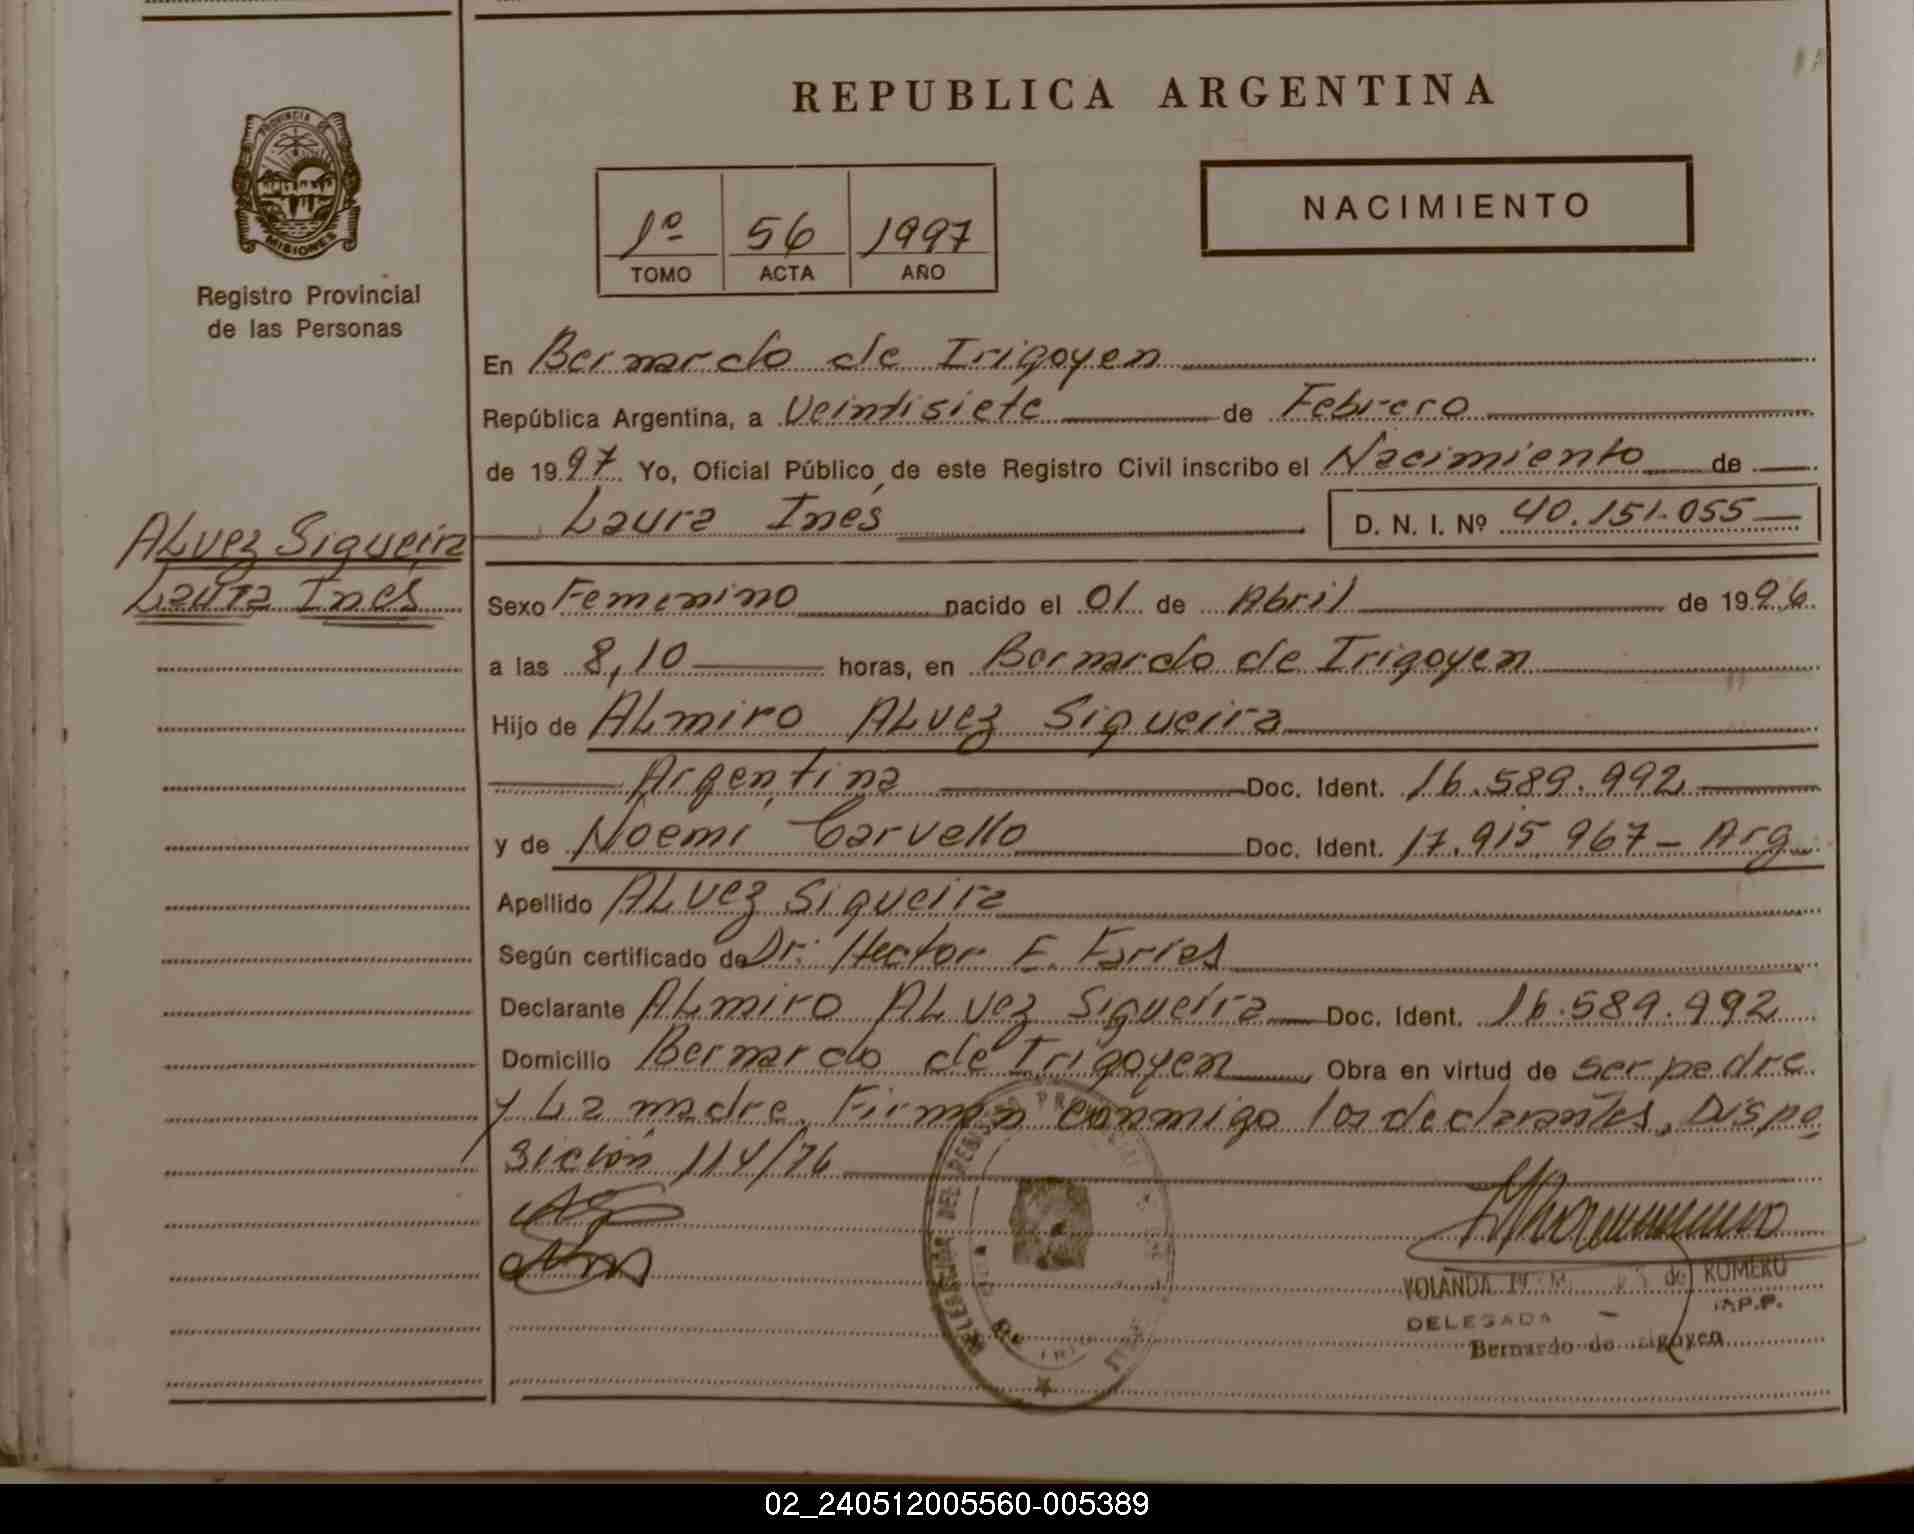 REPUBLICA ARGENTINA
PROVINCIA DE
MISIONES
Registro Provincial
de las Personas
1º 56 1997
TOMO ACTA AÑO
NACIMIENTO
En Bernardo de Irigoyen
República Argentina, a Veintisiete de Febrero
de 1997 Yo, Oficial Público de este Registro Civil inscribo el Nacimiento de
Laura Inés D. N. I. Nº 40.151.055
ALvez Siqueira
Laura Inés
Sexo Femenino nacido el 01 de Abril de 1996
a las 8,10 horas, en Bernardo de Irigoyen
Hijo de ALmiro ALvez Siqueira
Argentina Doc. Ident. 16.589.992
y de Noemí Carvello Doc. Ident. 17.915.967 - Arg
Apellido ALvez Siqueira
Según certificado de Dr. Hector E.
Declarante ALmiro ALvez Siqueira Doc. Ident. 16.589.992
Domicilio Bernardo de Irigoyen, Obra en virtud de ser padre
y La madre. Firman conmigo los declarantes. Dispo
sición 114/76
YOLANDA de ROMERO
DELEGADA
Bernardo de Irigoyen
02_240512005560-005389